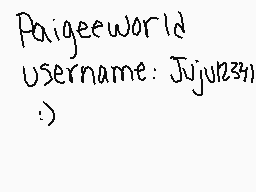 Paigeeworld
username: Juju12341
:)